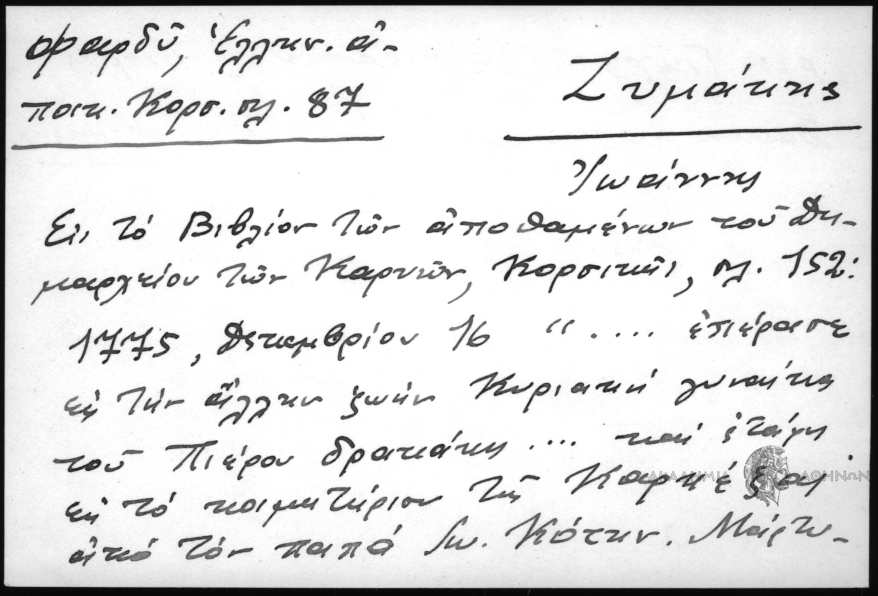 Φαρδῦ, Ἑλλην. ἀ-
ποικ. Κορσ. σλ. 87
Ζυμάκης
Ἰωάννης
Εἰς τό Βιβλίον τῶν ἀποθαμένων τοῦ Δη-
μαρχείου τῶν Καρυῶν, Κορσικῆς, σλ. 152:
1775, Δεκεμβρίου 16 " .... ἐπέρασε
εἰς τήν ἄλλην ζωήν Κυριακή γυναίκα
τοῦ Πιέρου δρακάκη .... καί ἐτάφη
εἰς τό κοιμητήριον τῆς
ἀπό τόν παπά Ἰω. Κότην. Μάρτυ-
ΑΚΑΔΗΜΙΑ ΑΘΗΝΩΝ